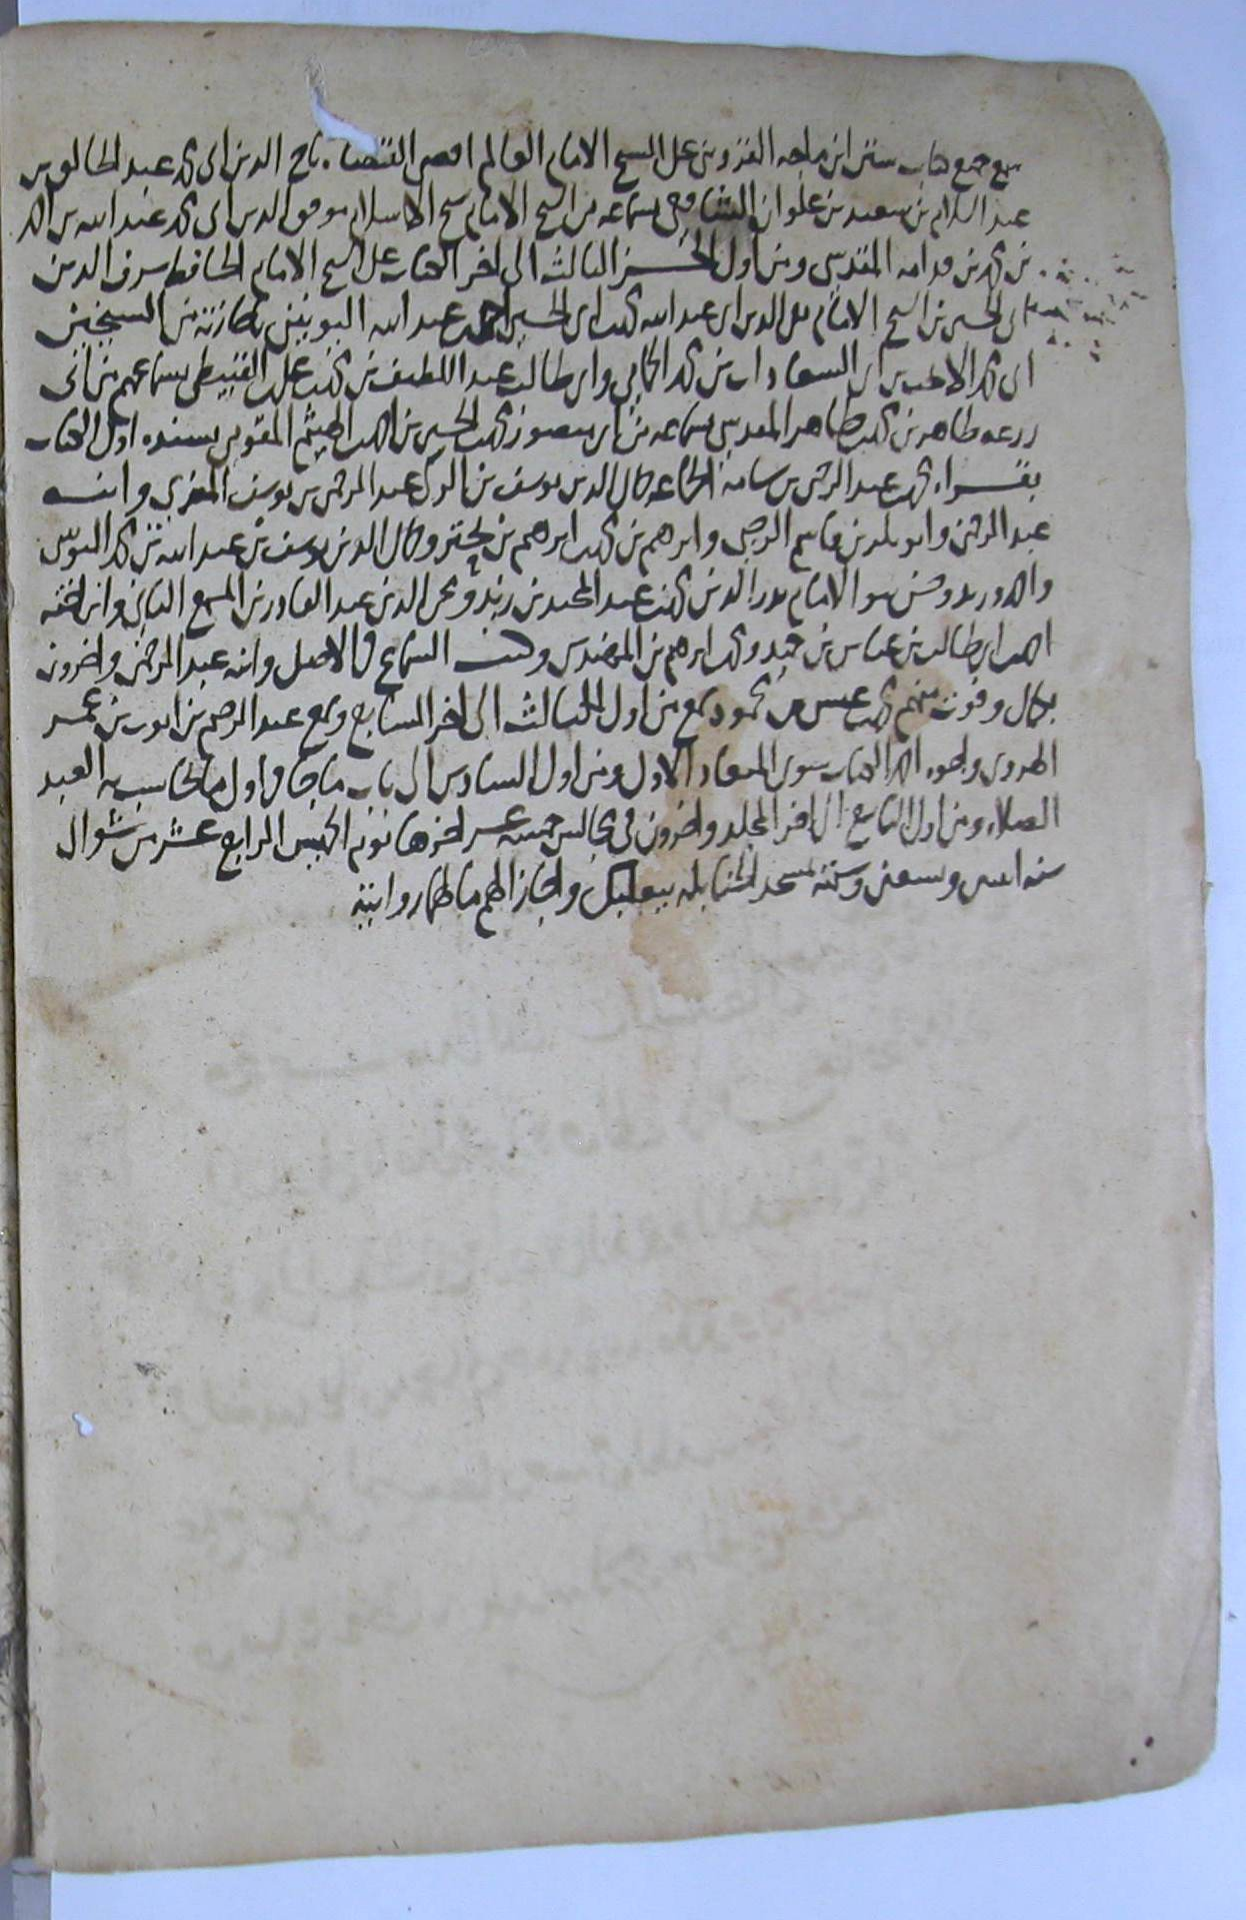 سمع جميع كتاب سنن ابن ماجه القزويني على الشيخ الامام العالم اقضى القضاه تاج الدين ابي محمد عبد الخالق بن
عبد السلام بن سعيد بن علوان الشافعي بسماعه من الشيخ الامام شيخ الاسلام موفق الدين ابي محمد عبد الله بن احمد
بن محمد بن قدامه المقدسي ومن اول الجزء الثالث الى اخر الكتاب على الشيخ الامام الحافظ شرف الدين
ابي الحسين بن الشيخ الامام تقي الدين ابي عبد الله محمد بن ابي الحسين احمد عبد الله اليونيني باجازته من الشيخين
ابي محمد الانجب بن ابي السعادات بن محمد الحمامي وابي طالب عبد اللطيف بن محمد بن علي القبيطي بسماعهم من ابي
زرعه طاهر بن محمد بن طاهر المقدسي بسماعه من ابي منصور محمد بن الحسين بن احمد بن الهيثم المقومي بسنده اول الكتاب
بقراءه محمد بن عبد الرحمن بن سامه الجماعه كمال الدين يوسف بن الزكي عبد الرحمن بن يوسف المزي وابنه
عبد الرحمن وابو بكر بن قاسم الرحبي وابرهيم بن محمد بن ابرهيم بن وكمال الدين يوسف بن عبد الله بن محمد
الامام بدر الدين محمد بن عبد المجيد بن زيد ومحي الدين عبد القادر بن وابن اخته
احمد بن ابي طالب بن عباس بن ومحمد بن ابرهيم بن المهندس وكتب السماع في الاصل وابنه عبد الرحمن واخرون
بكمال وفوت منهم محمد بن عيسى بن محمود سمع من اول الثالث الى اخر السابع وسمع عبد الرحيم بن ايوب بن عمر
الهروي الكتاب سوى الميعاد الاول ومن اول السادس الى باب ما جا في اول ما يحاسب به العبد
الصلاه ومن اول التاسع الى اخر المجلد واخرون في مجالس خمسه عشر اخرها يوم الخميس الرابع عشر من شوال
سنه وستمئه بمسجد الحنابله ببعلبك واجاز لهم ما لهما روايته